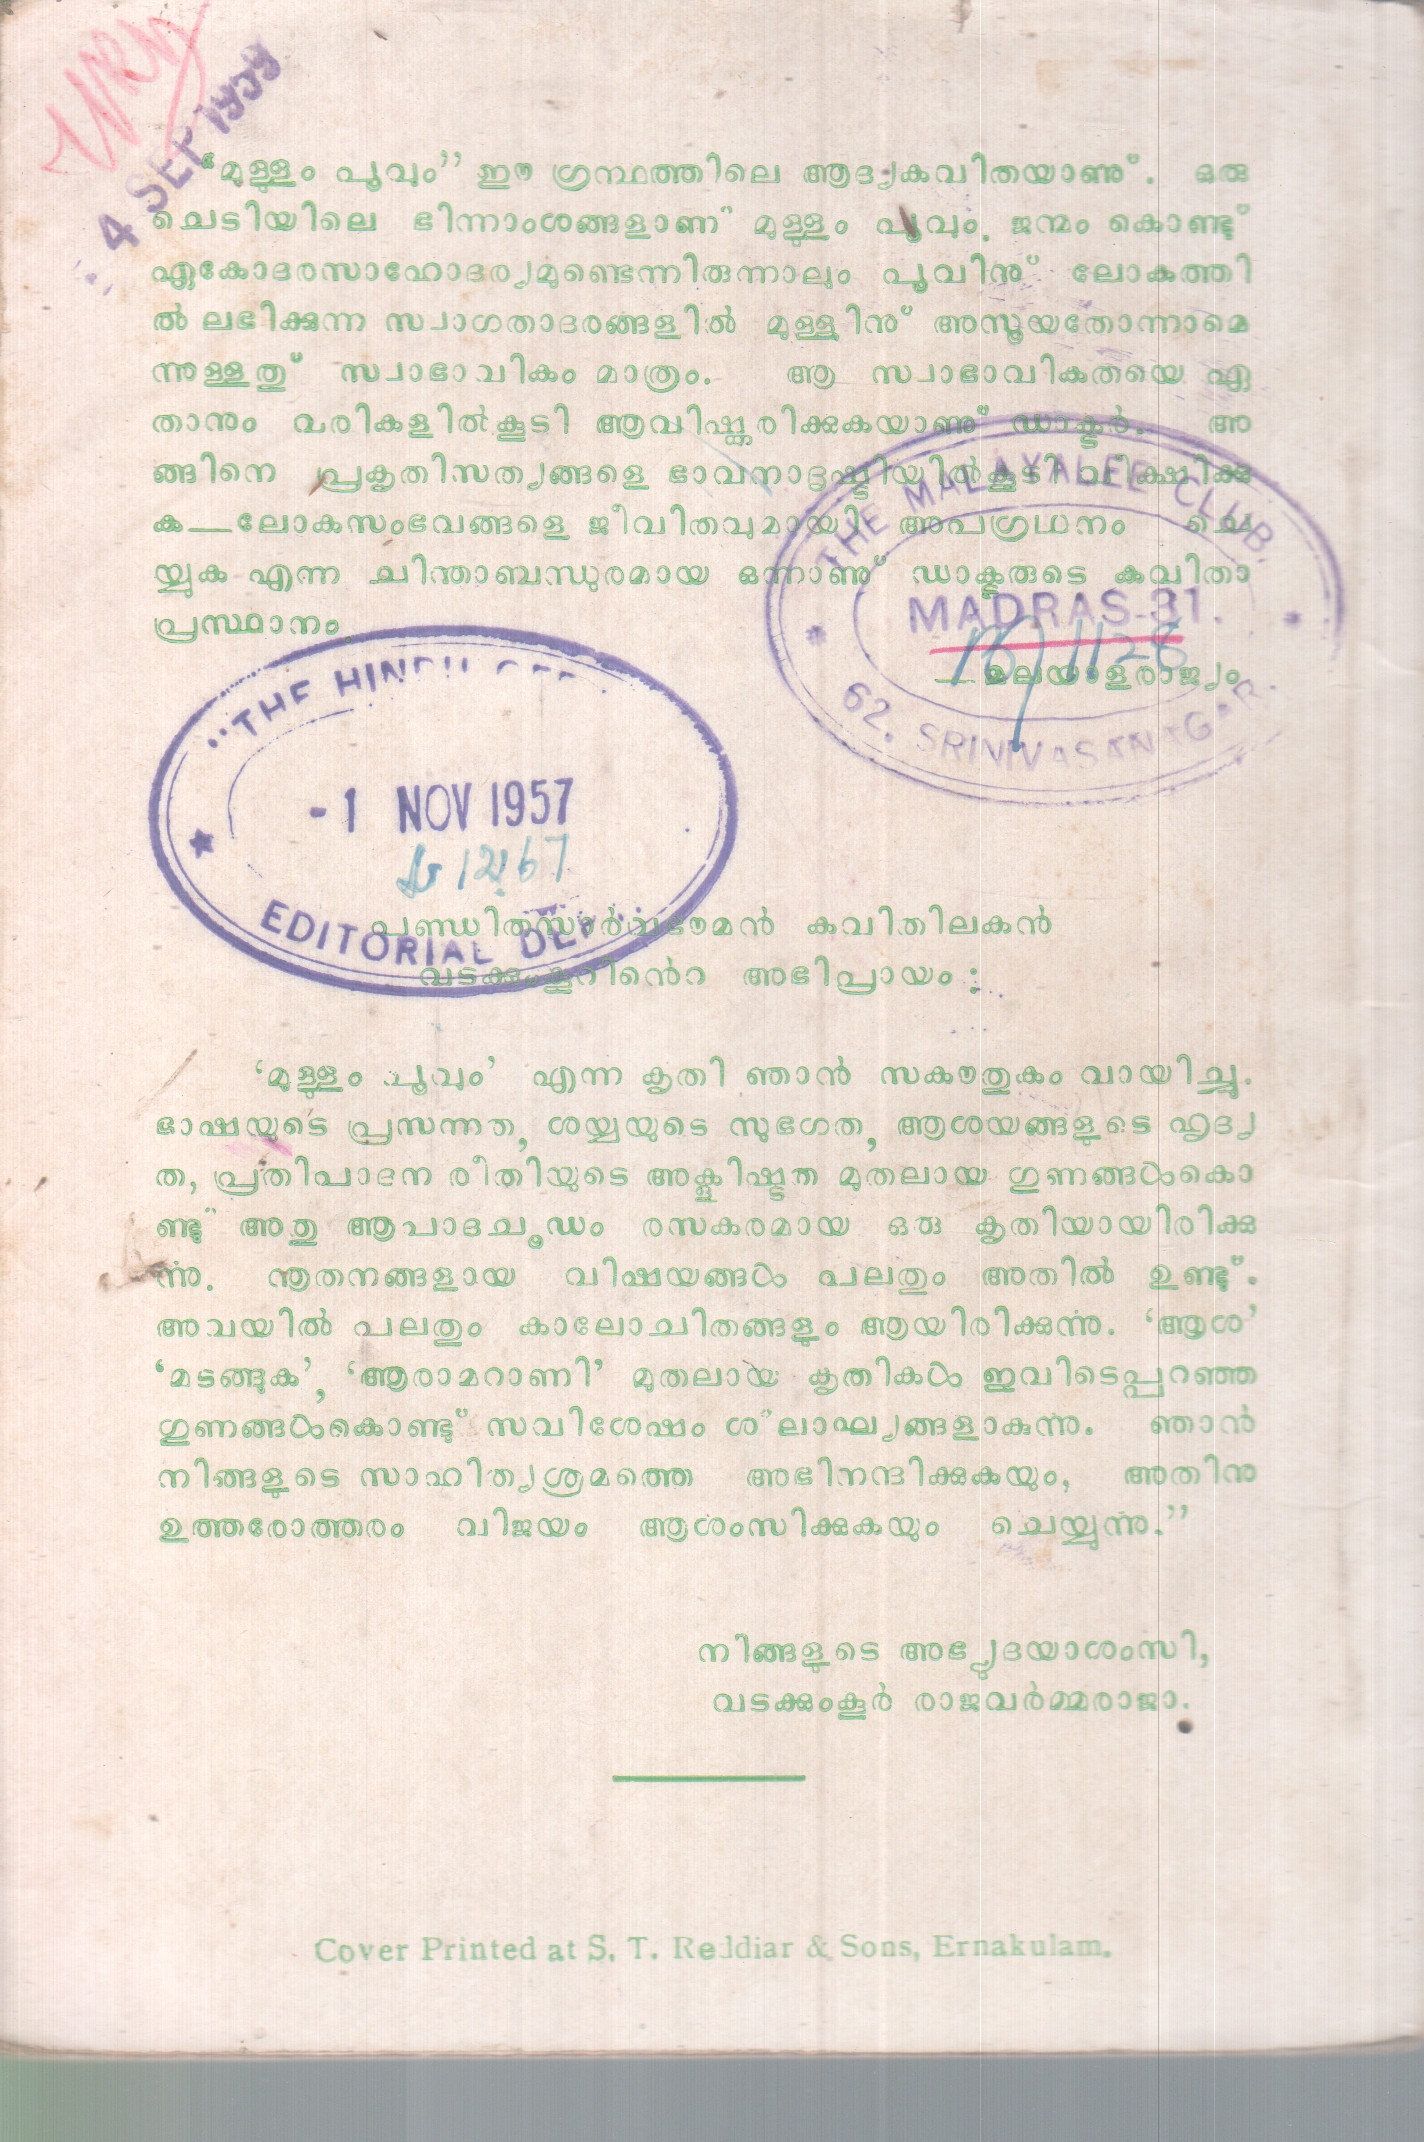 4 SEP 1959
“മുള്ളും പൂവും” ഈ ഗ്രന്ഥത്തിലെ ആദ്യകവിതയാണു്. ഒരു
ചെടിയിലെ ഭിന്നാംശങ്ങളാണ് മുള്ളും പൂവും. ജന്മം കൊണ്ടു്
ഏകോദരസാഹോദര്യമുണ്ടെന്നിരുന്നാലും പൂവിനു് ലോകത്തി
ൽ ലഭിക്കുന്ന സ്വാഗതാദരങ്ങളിൽ മുള്ളിനു് അസൂയതോന്നാമെ
ന്നുള്ളതു് സ്വാഭാവികം മാത്രം. ആ സ്വാഭാവികതയെ ഏ
താനും വരികളിൽകൂടി ആവിഷ്ക്കരിക്കുകയാണു് ഡാക്ടർ. അ
ങ്ങിനെ പ്രകൃതിസത്യങ്ങളെ ഭാവനാദൃഷ്ടിയിൽകൂടി വീക്ഷിക്കു
ക—ലോകസംഭവങ്ങളെ ജീവിതവുമായി അപഗ്രഥനം ചെ
യ്യുക എന്ന ചിന്താബന്ധുരമായ ഒന്നാണു് ഡാക്ടരുടെ കവിതാ
പ്രസ്ഥാനം
—മലയാളരാജ്യം.
THE MALAYALEE CLUB.
MADRAS-31.
62, SRINIVASANAGAR.
"THE HINDU
-1 NOV 1957
EDITORIAL DEPT.
പണ്ഡിതസാർവഭൗമൻ കവിതിലകൻ
വടക്കുംകൂറിൻെറ അഭിപ്രായം :
‘മുള്ളും പൂവും’ എന്ന കൃതി ഞാൻ സകൗതുകം വായിച്ചു.
ഭാഷയുടെ പ്രസന്നത, ശയ്യയുടെ സുഭഗത, ആശയങ്ങളുടെ ഹൃദ്യ
ത, പ്രതിപാദന രീതിയുടെ അക്ലിഷ്ടത മുതലായ ഗുണങ്ങൾകൊ
ണ്ടു് അതു ആപാദചൂഡം രസകരമായ ഒരു കൃതിയായിരിക്കു
ന്നു. നൂതനങ്ങളായ വിഷയങ്ങൾ പലതും അതിൽ ഉണ്ടു്.
അവയിൽ പലതും കാലോചിതങ്ങളും ആയിരിക്കുന്നു. ‘ആശ’
‘മടങ്ങുക’, ‘ആരാമറാണി’ മുതലായ കൃതികൾ ഇവിടെപ്പറഞ്ഞ
ഗുണങ്ങൾകൊണ്ടു് സവിശേഷം ശ്ലാഘ്യങ്ങളാകുന്നു. ഞാൻ
നിങ്ങളുടെ സാഹിത്യശ്രമത്തെ അഭിനന്ദിക്കുകയും, അതിനു
ഉത്തരോത്തരം വിജയം ആശംസിക്കുകയും ചെയ്യുന്നു.”
നിങ്ങളുടെ അഭ്യുദയാശംസി,
വടക്കുംകൂർ രാജവർമ്മരാജാ.
Cover Printed at S. T. Reddiar & Sons, Ernakulam.